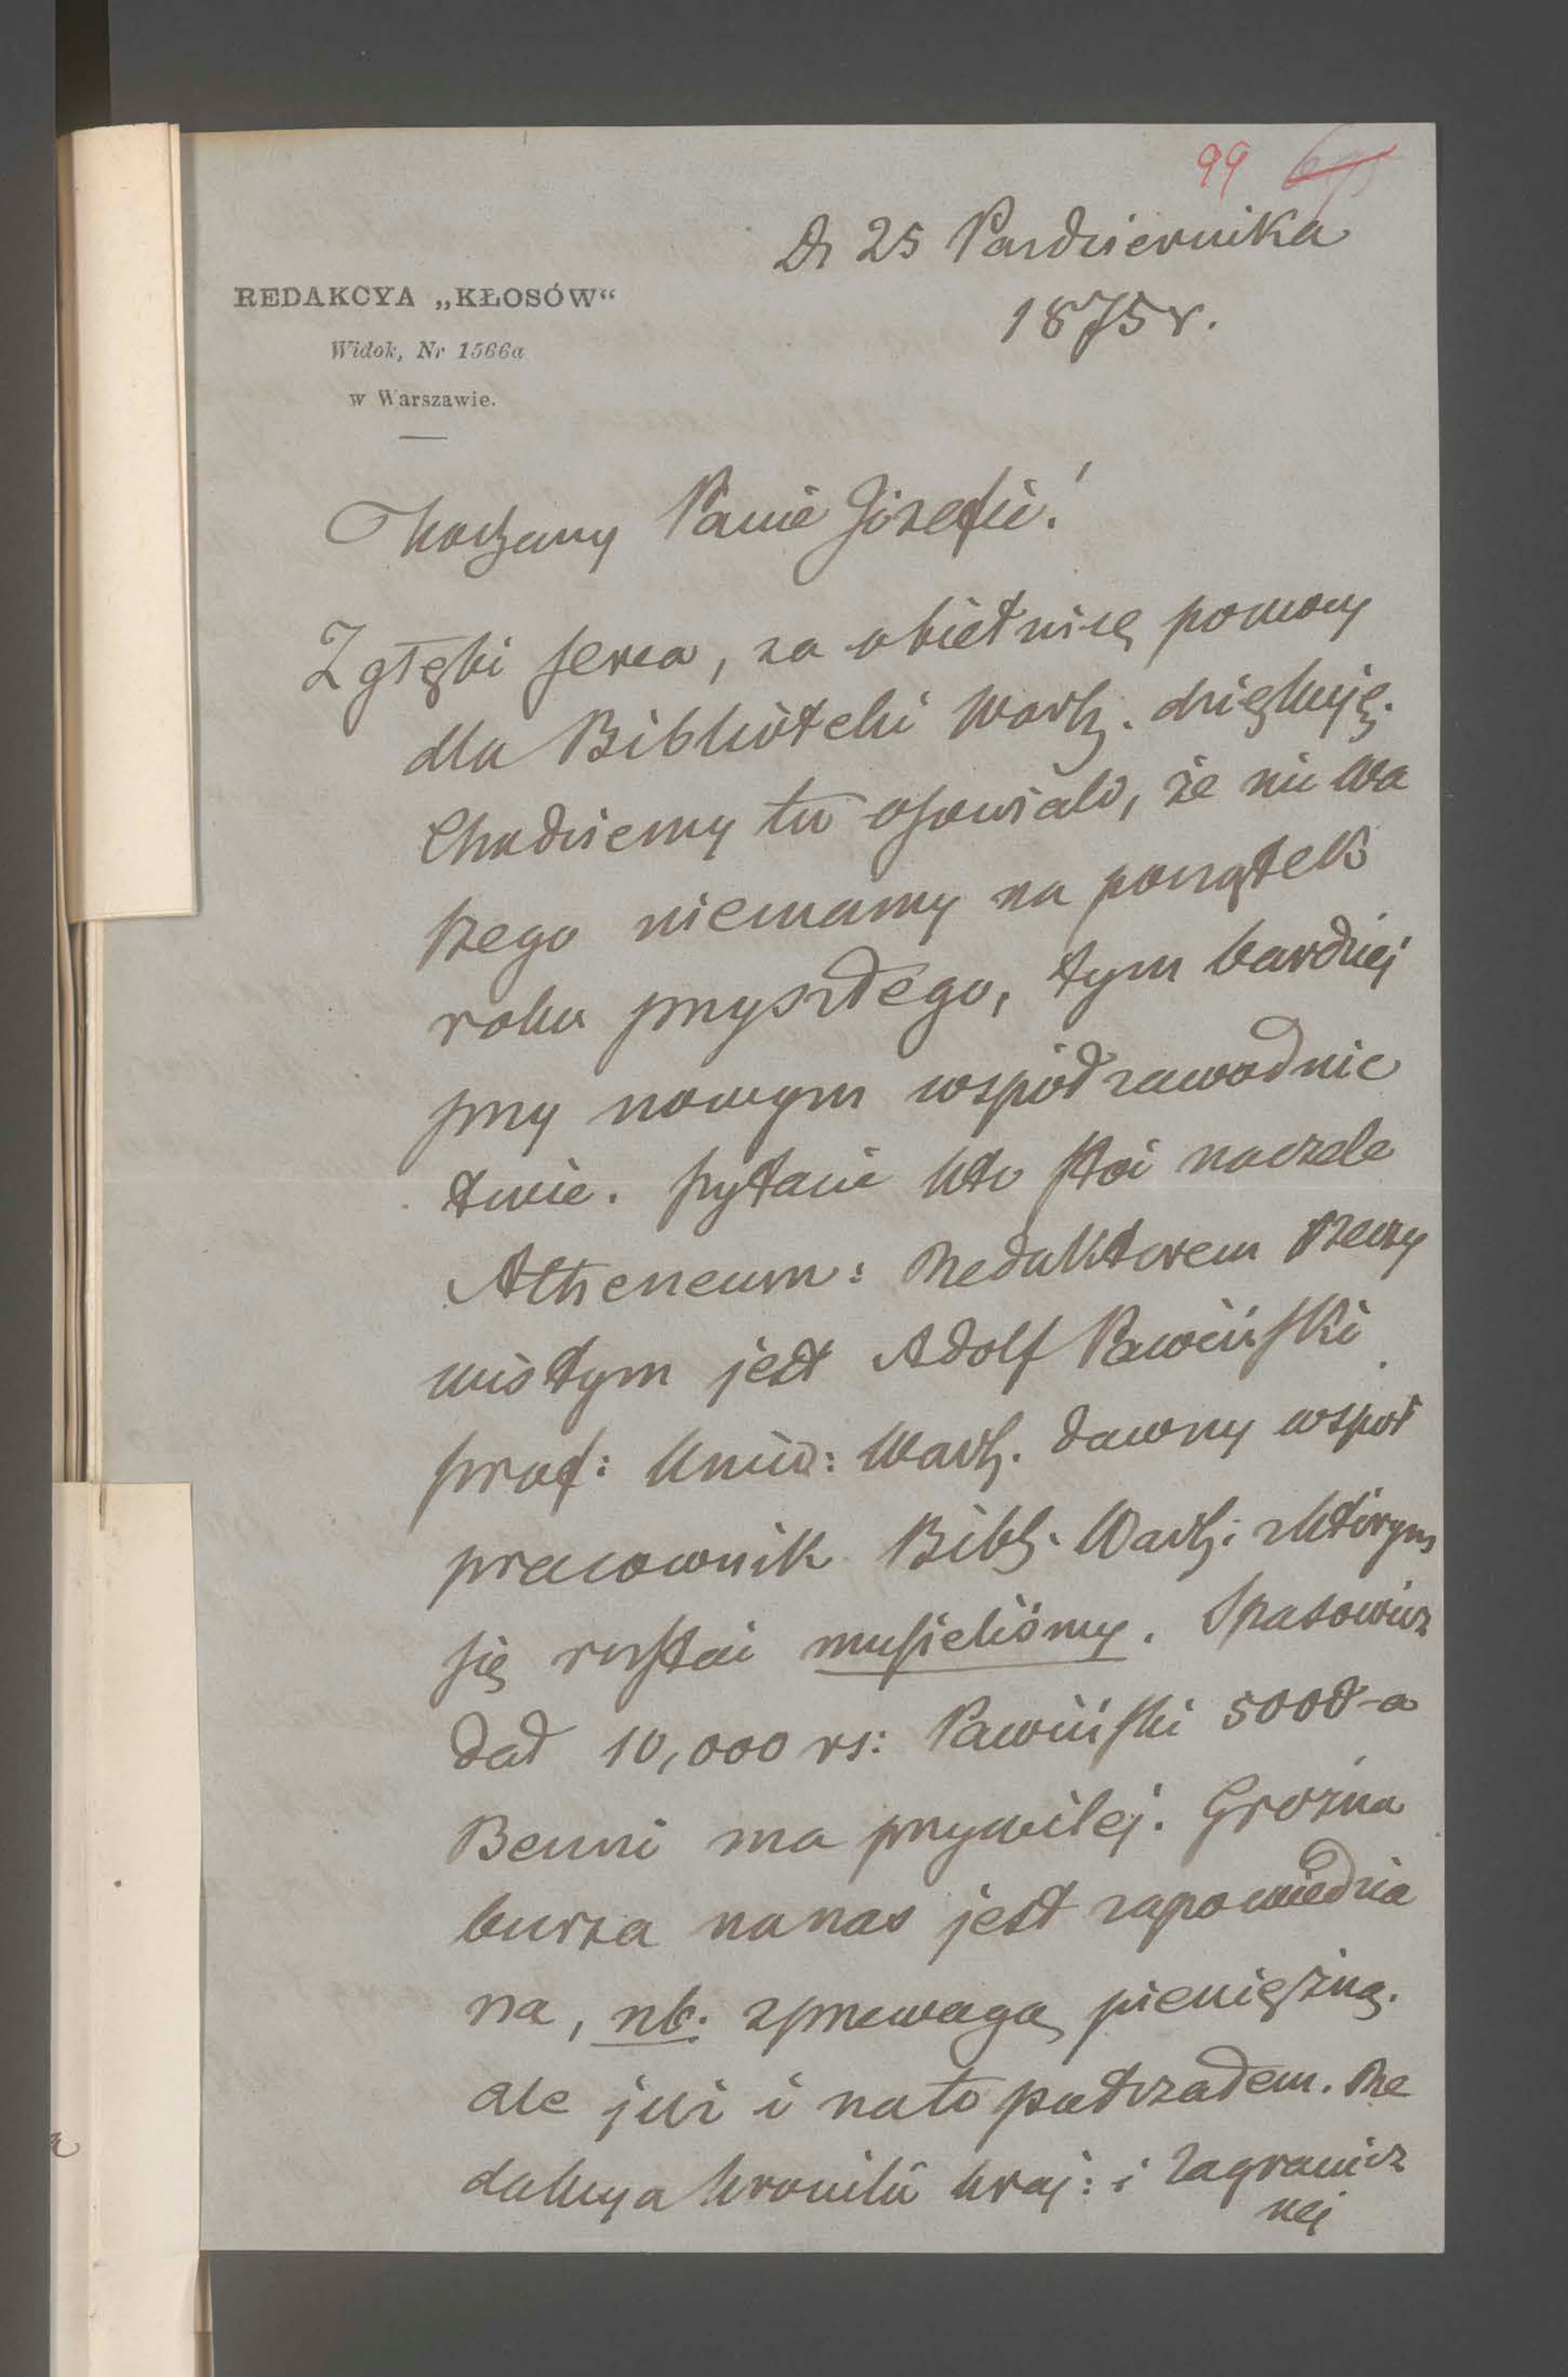 99
D 25 Pazdziernika
1875 r.
REDAKCYA „KŁOSÓW“
Widok, Nr 1566a
w Warszawie.
Kochany Panie Józefie!
Z głębi serca, za obietnicę pomocy
dla Biblioteki Warsz. dziękuję.
Chodziemy tu osowiali, że nic wa
żego niemamy na początek
roku przyszłego, tym bardziej
przy nowym współzawodnic
twie. Pytanie kto stoi naczele
Atheneum: Redaktorem rzeczy
wistym jest Adolf Pawiński
prof: Uniw: Warsz. dawny współ
pracownik Bibl. Warsz: z którym
się rozstać musieliśmy. Spasowicz
dał 10,000 rs: Pawiński 5000-a
Benni ma przywilej. Groźna
burza nanas jest zapowiedzia
na, nb: z przewagą pieniężną.
ale już i nato patrzałem. Re
dakcya kroniki kraj: i zagranicz
nej